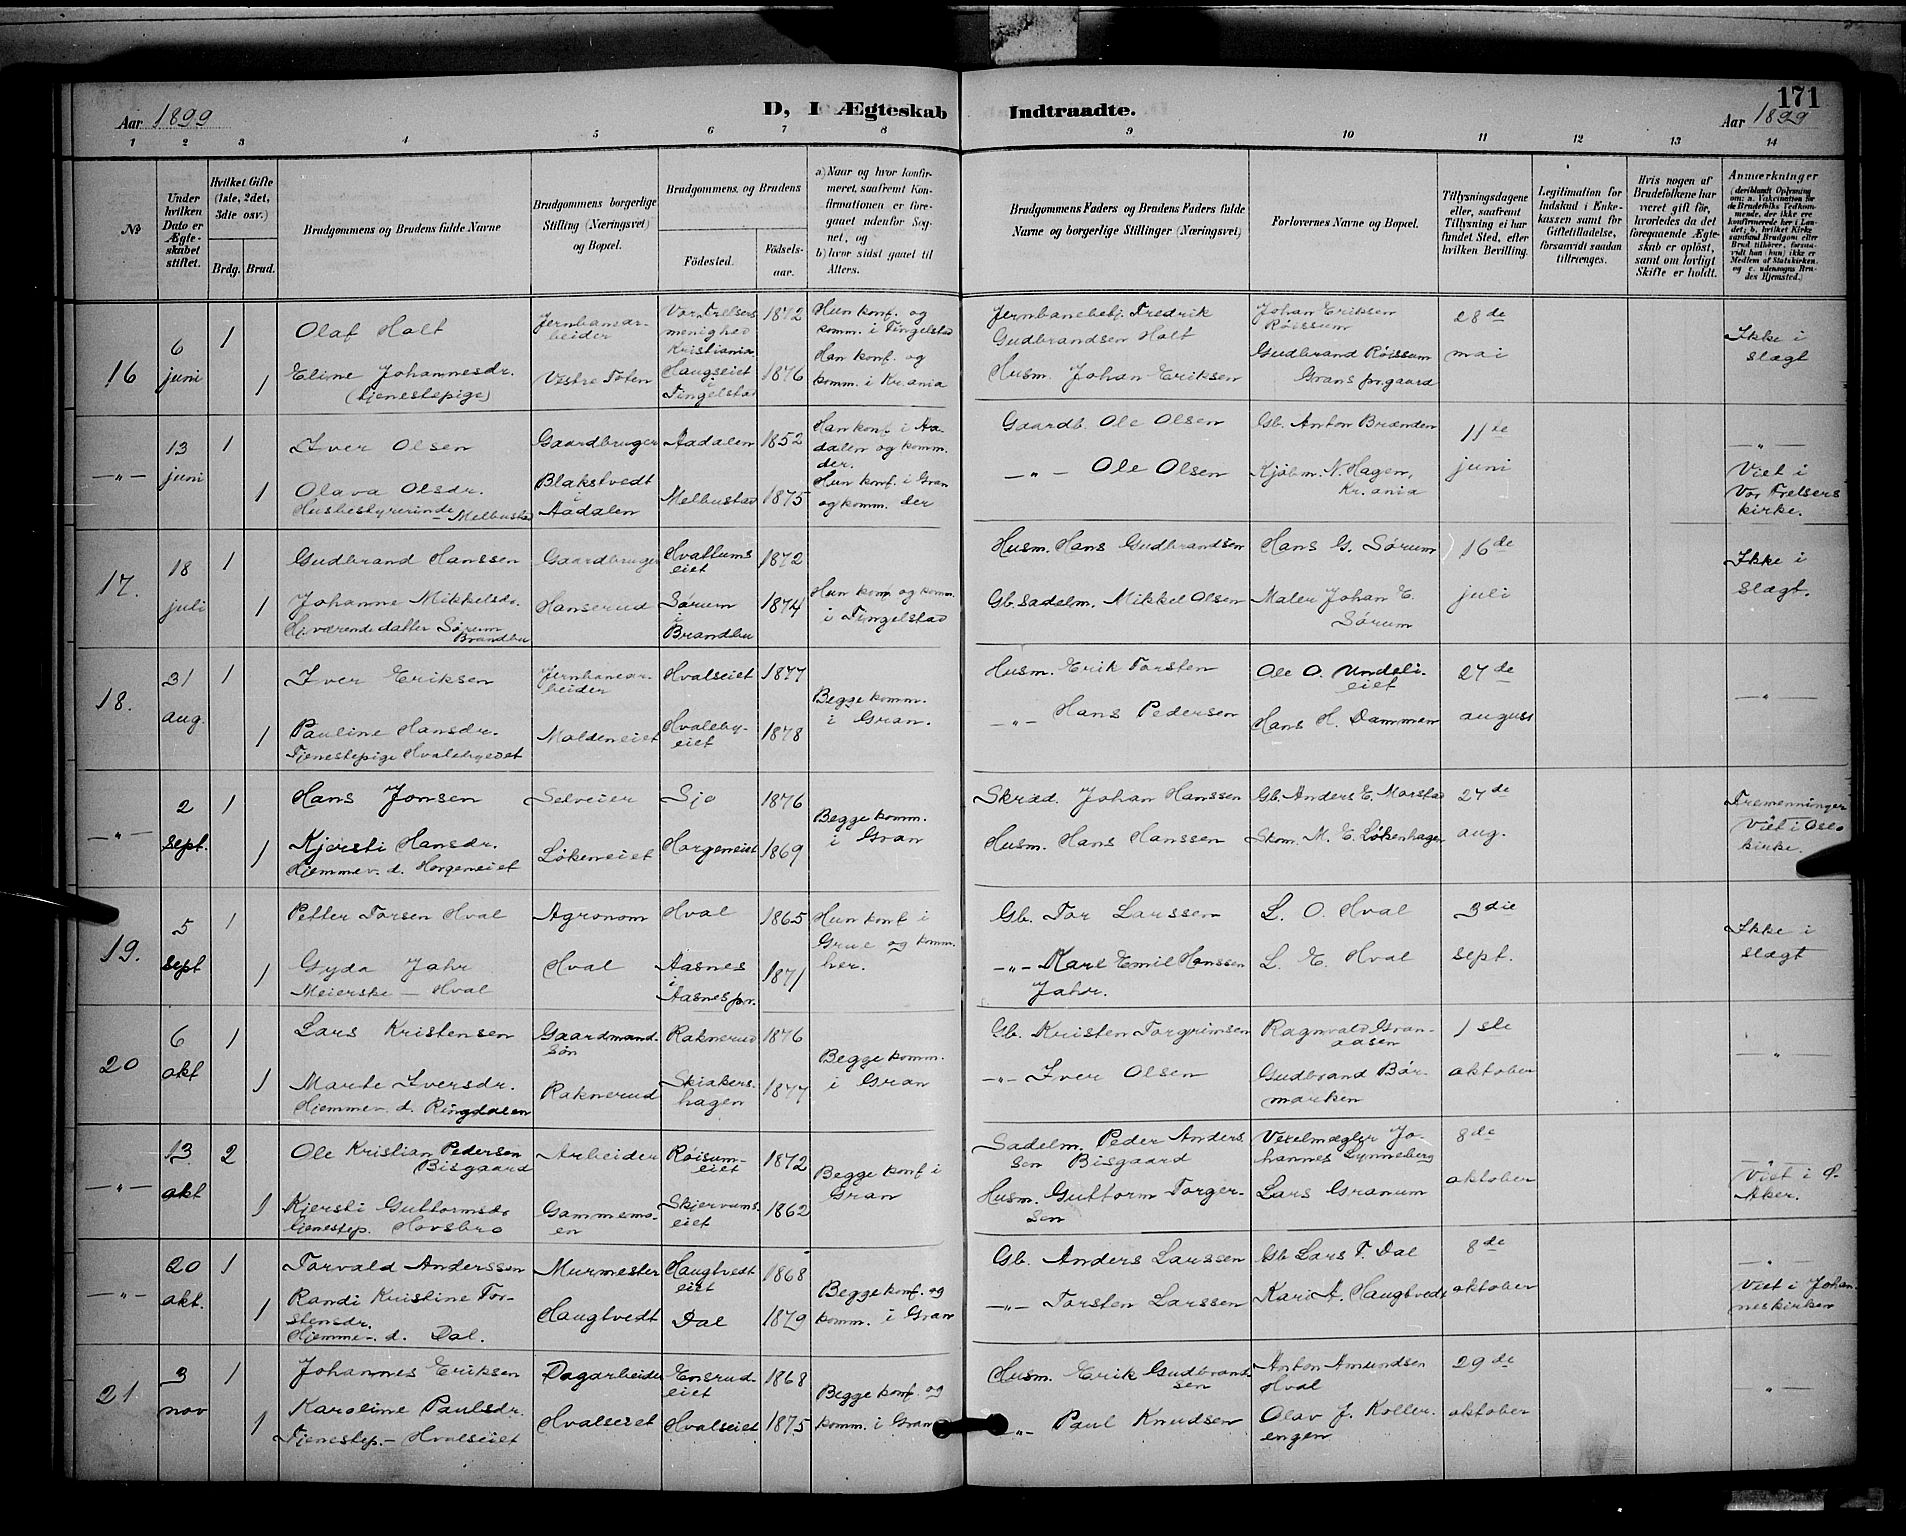 171
Aar 1899
D, I Ægteskab Indtraadte.
Aar 1899
1 2 3 4 5 6 7 8 9 10 11 12 13 14
№
Under hvilken Dato er Ægteskabet stiftet.
Hvilket Gifte (1ste, 2det, 3die osv.)
Brdg. Brud.
Brudgommens og Brudens fulde Navne
Brudgommens borgerlige Stilling (Næringsvei) og Bopæl.
Brudgommens og Brudens
Fødested.
Fødselsaar.
a) Naar og hvor konfirmeret, saafremt Konfirmationen er foregaaet udenfor Sognet, og
b) hvor sidst gaaet til Alters.
Brudgommens Faders og Brudens Faders fulde Navne og borgerlige Stillinger (Næringsvei)
Forlovernes Navne og Bopæl.
Tillysningsdagene eller, saafremt Tillysning ei har fundet Sted, efter hvilken Bevilling.
Legitimation for Indskud i Enkekassen samt for Giftetilladelse, forsaavidt saadan tiltrænges.
Hvis nogen af Brudefolkene har været gift før, hvorledes da det foregaaende Ægteskab er opløst, samt om lovligt Skifte er holdt.
Anmærkninger
(deriblandt Oplysning om: a. Vakcination for de Brudefolks Vedkommende, der ikke ere konfirmerede her i Landet; b. hvilket Kirkesamfund Brudgom eller Brud tilhører, forsaavidt han (hun) ikke er Medlem af Statskirken, og c. udensogns Brudes Hjemsted.)
16
6 juni
1
1
Olaf Holt
Eline Johannesdr.
(tjenestepige)
Jernbanearbeider
Vestre Toten
Vor Frelsers menighed Kristiania
Haugseiet Tingelstad
1872
1876
Hun konf. og komm. i Tingelstad
Han konf. og komm. i Kr.ania
Jernbanebetj. Fredrik Gudbrandsen Holt
Husm. Johan Eriksen
Johan Eriksen Røissum
Gudbrand Røissum
Grans prgaard
28de mai
Ikke i slægt
—"—
13 juni
1
1
Iver Olsen
Olava Olsdr.
Husbestyrerinde — Melbustad
Gaardbruger
Blakstvedt i Aadalen
Aadalen
Melbustad
1852
1875
Han konf. i Aadalen og komm. der.
Hun konf. i Gran og komm. der
Gaardb. Ole Olsen
—"— Ole Olsen
Gb. Anton Brænden
Kjøbm. N. Hagen, Kr.ania
11te juni
—"—
Viet i Vor Frelsers kirke.
17.
18 juli
1
1
Gudbrand Hanssen
Johanne Mikkelsdr.
Hj.værende datter Sørum Brandbu
Gaardbruger
Hanserud
Hvattumseiet
Sørum i Brandbu
1872
1874
Hun konf. og komm. i Tingelstad
Husm. Hans Gudbrandsen
Gb. sadelm. Mikkel Olsen
Hans G. Sørum
Maler Johan E. Sørum
16de juli
Ikke i slægt.
18.
31 aug.
1
1
Iver Eriksen
Pauline Hansdr.
Tjenestepige Hvalebyeiet
Jernbanearbeider
Moldeneiet
Hvalseiet
Hvalebyeiet
1877
1878
Begge komm. i Gran.
Husm. Erik Torsten
—"— Hans Pedersen
Ole O. Undelieiet
Hans H. Dammen
27de august
—"—
—"—
2 sept.
1
1
Hans Jonsen
Kjersti Hansdr.
Hjemmev. d. Horgeneiet
Selveier
Løkeneiet
Sjo
Horgeneiet
1876
1869
Begge komm. i Gran
Skræd. Johan Hanssen
Husm. Hans Hanssen
Gb. Anders E. Morstad
Skom. M. E. Løkenhagen
27de aug.
Fremenninger
Viet i Oslo kirke.
19.
5 sept
1
1
Petter Torsen Hval
Gyda Jahr
Meierske — Hval
Agronom
Hval
Hval
Aasnes i Aasnes pr.
1865
1871
Hun konf i Grue og komm. her.
Gb. Tor Larssen
—"— Karl Emil Hanssen Jahr.
L. O. Hval
L. E. Hval
3die sept.
Ikke i slægt
20
6 okt
1
1
Lars Kristensen
Marte Iversdr.
Hjemmev. d. Ringdalen
Gaardmandsøn
Raknerud
Raknerud
Skiakershagen
1876
1877
Begge komm. i Gran
Gb. Kristen Torgrimsen
—"— Iver Olsen
Ragnvald Granaasen
Gudbrand Børmarken
1ste oktober
—"—
—"—
13 okt
2
1
Ole Kristian Pedersen Bisgaard
Kjersti Guttormsdr.
tjenestep. Hovsbro
Arbeider
Gammemoen
Røisumeiet
Skjervumseiet
1872
1862
Begge konf i Gran
Sadelm. Peder Anderssen Bisgaard
Husm. Guttorm Torgersen
Vexelmægler Johannes Lynneberg
Lars Granum
8de oktober
—"—
Viet i Ø. Aker.
—"—
20 okt.
1
1
Torvald Anderssen
Randi Kristine Torstensdr.
Hjemmev. d. Dal.
Murmester
Haugtvedt
Haugtvedteiet
Dal
1868
1879
Begge konf. og komm. i Gran
Gb. Anders Larssen
—"— Torsten Larssen
Gb Lars T. Dal
Kari A. Haugtvedt
8de oktober
—"—
Viet i Johanneskirken
21
3 nov
1
1
Johannes Eriksen
Karoline Paulsdr.
Tjenestep. — Hvalseiet
Dagarbeider
Hvalseiet
Ensrudeiet
Hvalseiet
1868
1875
Begge konf. og komm. i Gran
Husm. Erik Gudbrandsen
—"— Paul Knudsen
Anton Amundsen Hval
Olav J. Kollerengen
29de oktober
—"—